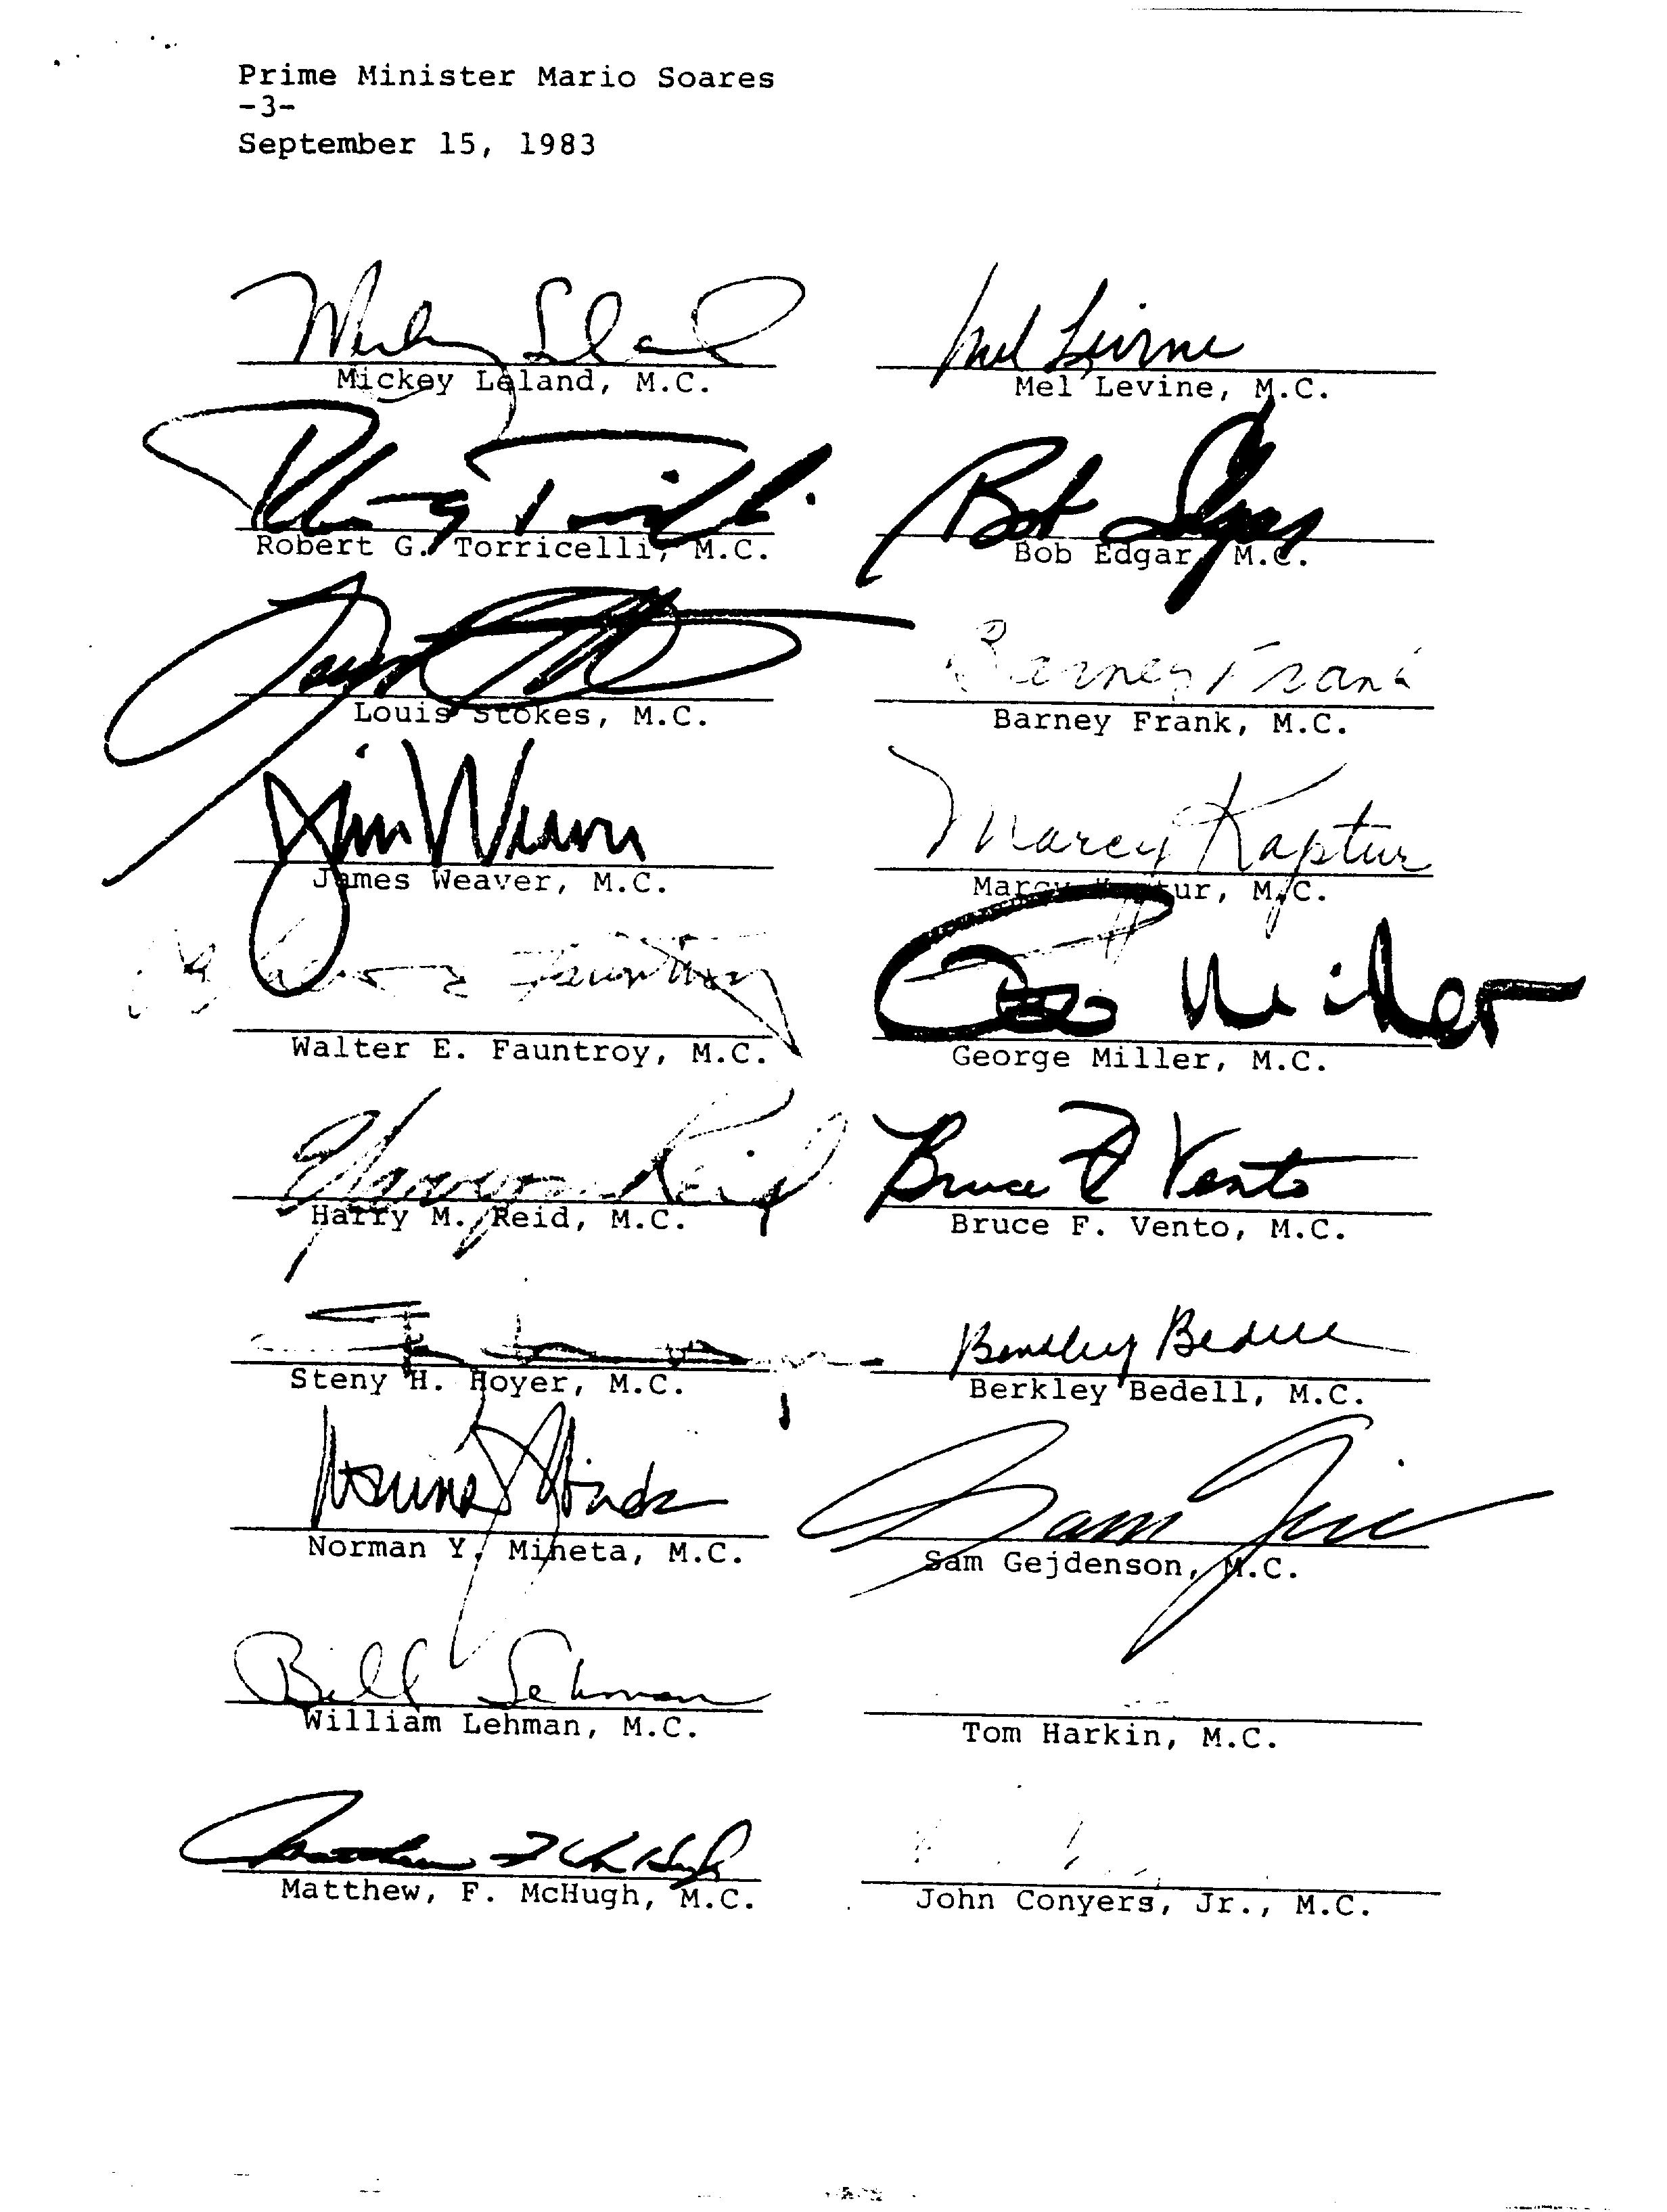 Prime Minister Mario Soares
-3-
September 15, 1983
Mickey Leland Mel Levine
Mickey Leland, M.C. Mel Levine, M.C.
Bob Edgar
Robert G. Torricelli, M.C. Bob Edgar, M.C.
Barney Frank
Louis Stokes, M.C. Barney Frank, M.C.
Jim Weaver Marcy Kaptur
James Weaver, M.C. Marcy Kaptur, M.C.
Fauntroy Miller
Walter E. Fauntroy, M.C. George Miller, M.C.
Harry Reid Bruce F Vento
Harry M. Reid, M.C. Bruce F. Vento, M.C.
Berkley Bedell
Steny H. Hoyer, M.C. Berkley Bedell, M.C.
Norman Y Mineta Sam
Norman Y. Mineta, M.C. Sam Gejdenson, M.C.
Bill Lehman
William Lehman, M.C. Tom Harkin, M.C.
Matthew F McHugh
Matthew, F. McHugh, M.C. John Conyers, Jr., M.C.